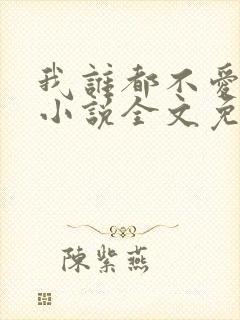 我誰都不愛
小說全文免
陳紫燕